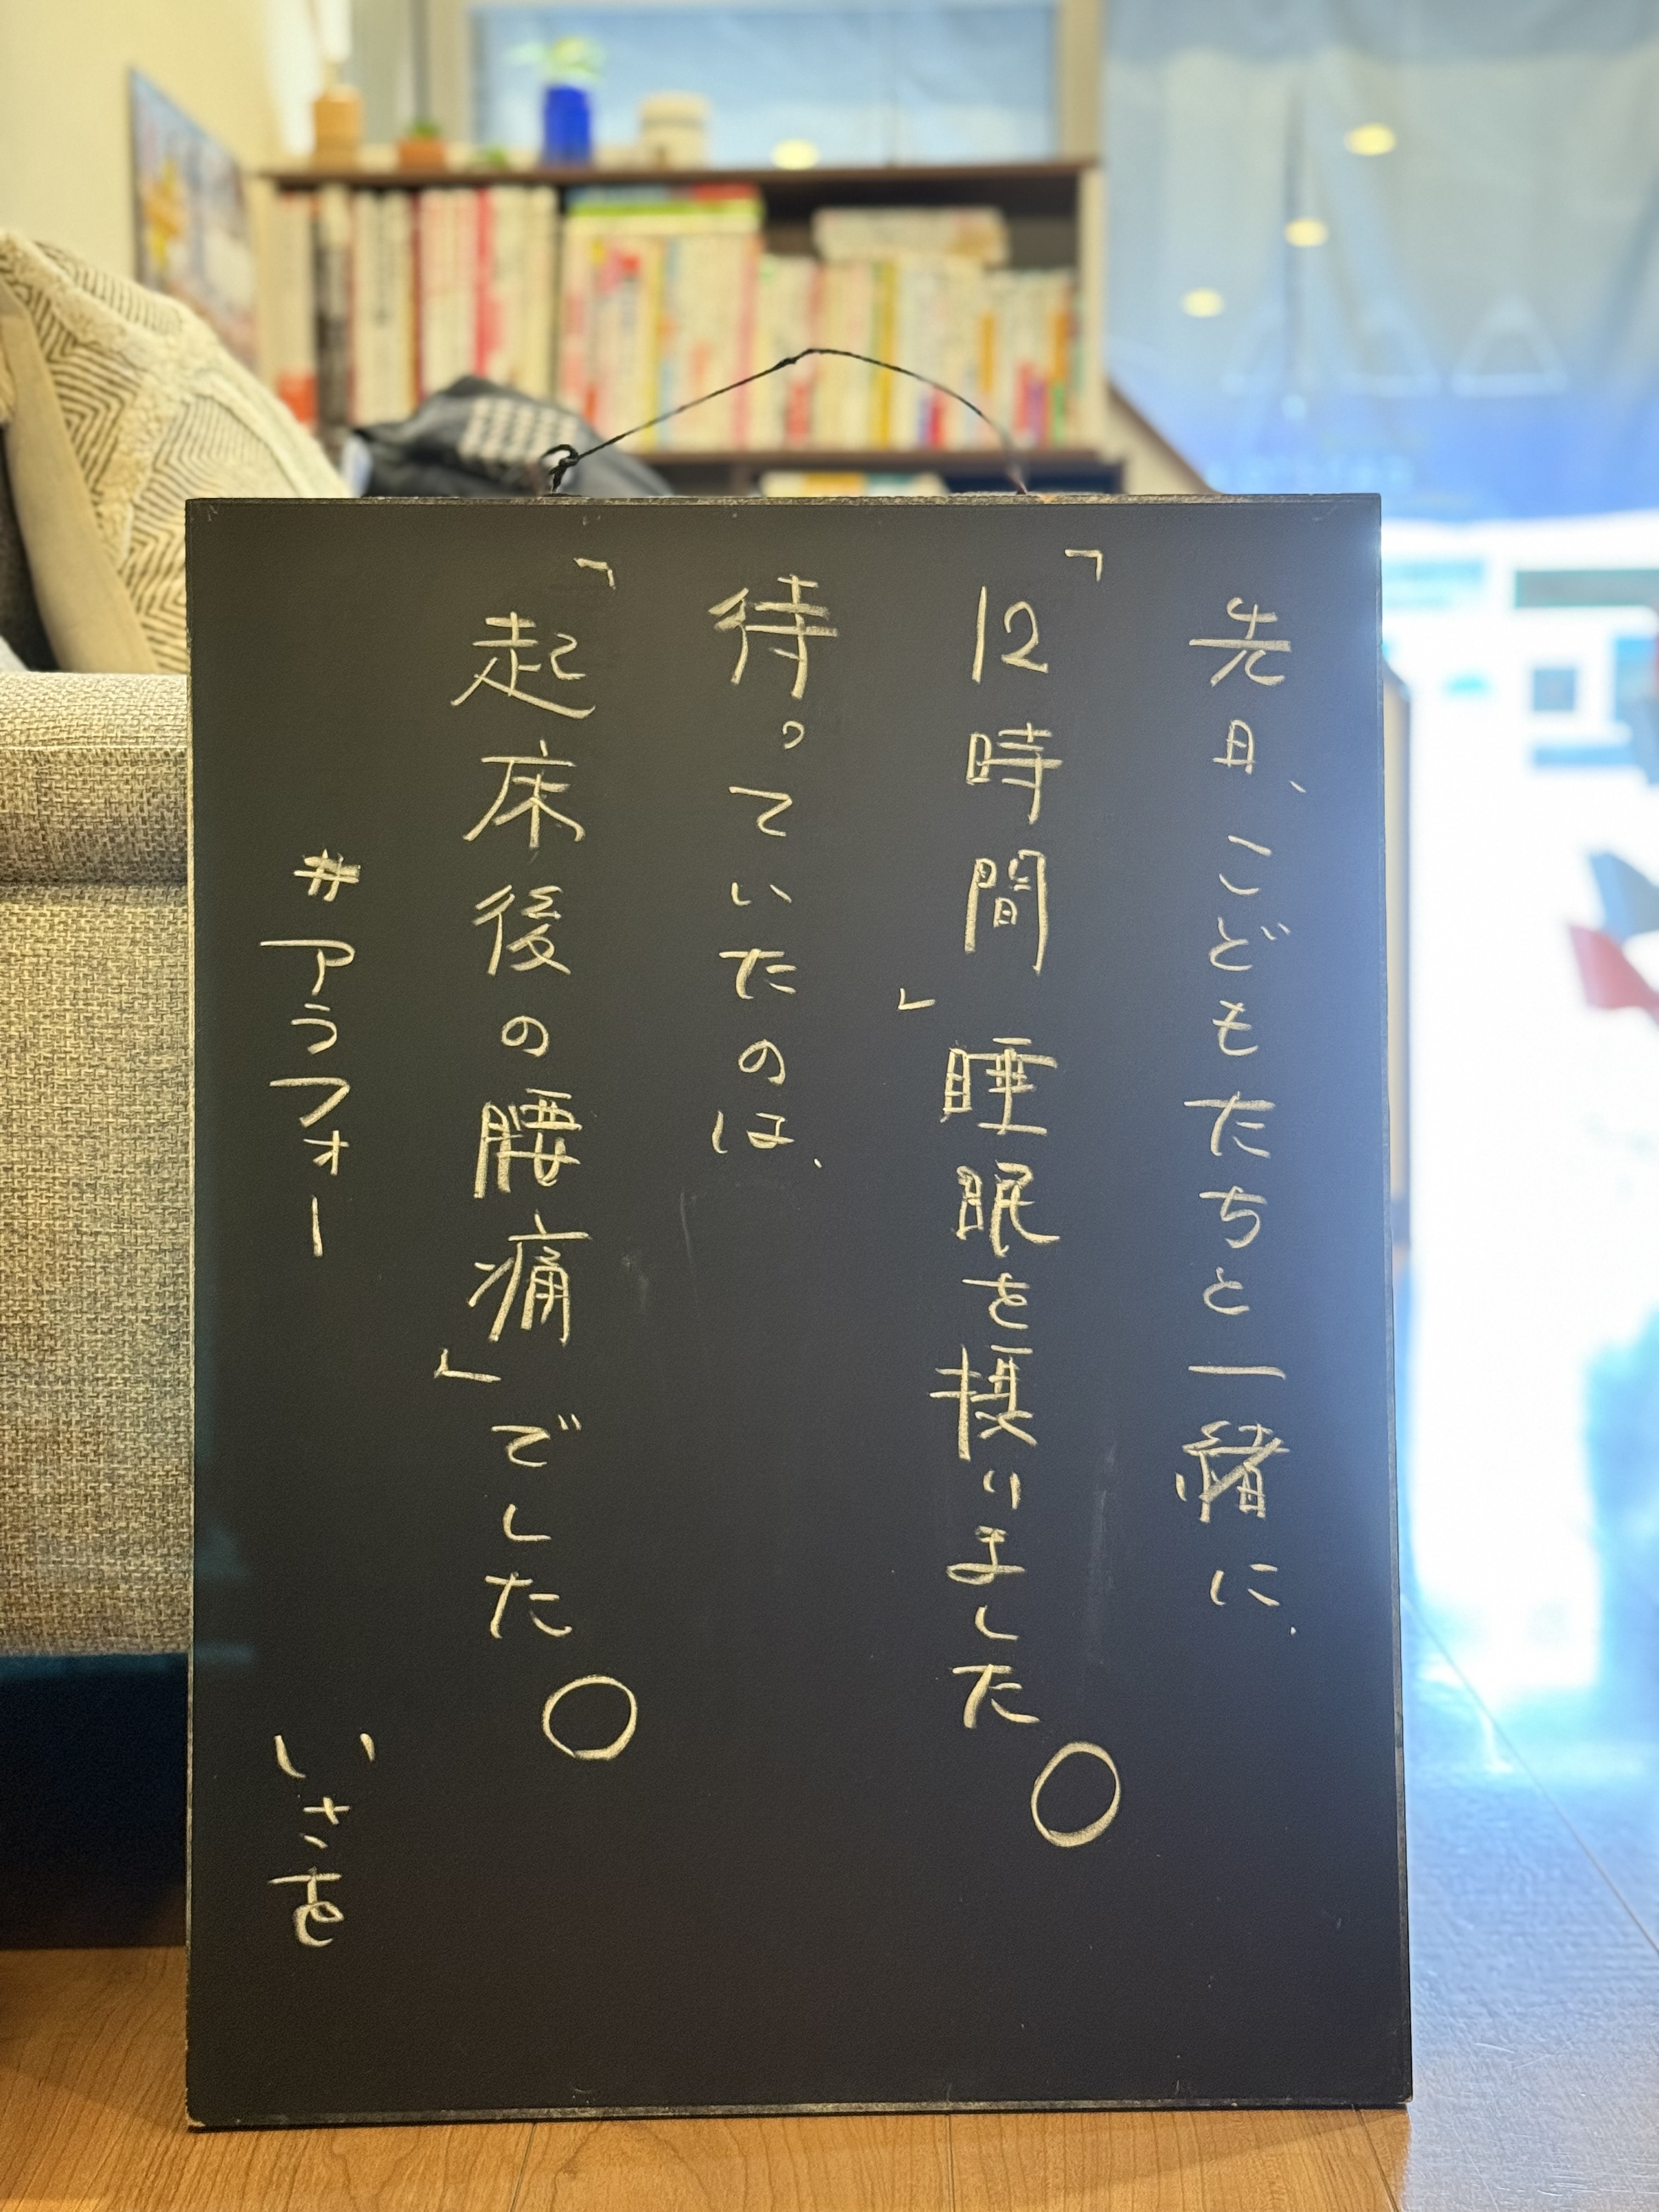 先日、こどもたちと一緒に、
「12時間」睡眠を摂りました。
待っていたのは、
「起床後の腰痛」でした。
#アラフォー
いさを